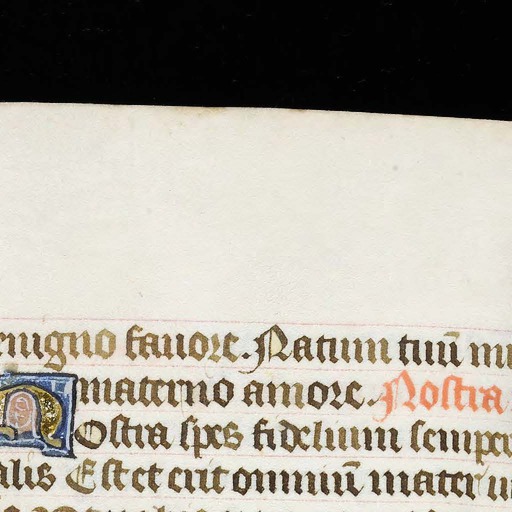 enigno fauore. Natum tuū
materno amore. Nostra
Nostra spes fidelium semper
alis Est et erit omniū mater